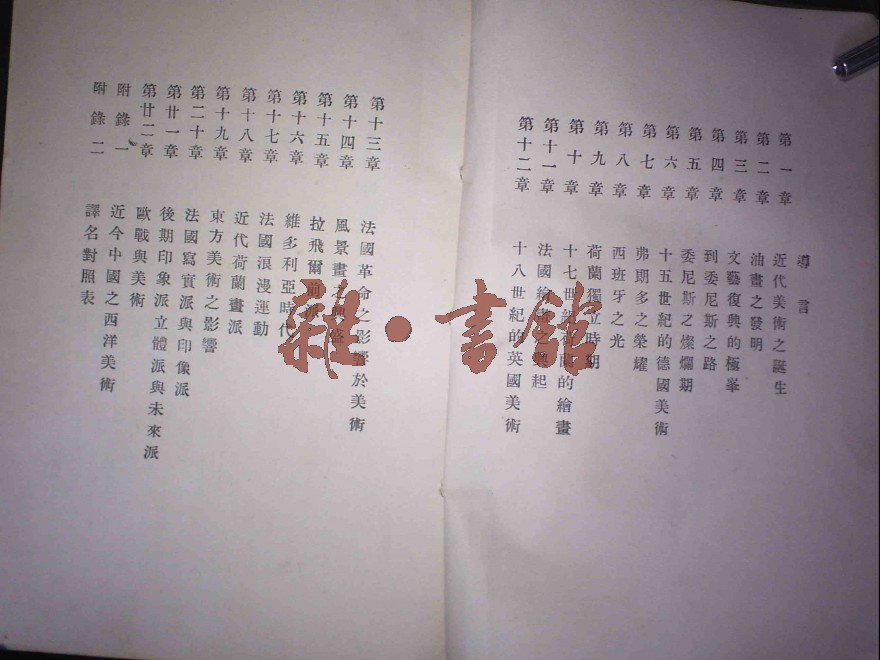 導言
第一章 近代美術之誕生
第二章 油畫之發明
第三章 文藝復興的極峯
第四章 到委尼斯之路
第五章 委尼斯之燦爛期
第六章 十五世紀的德國美術
第七章 弗朗多之榮耀
第八章 西班牙之光
第九章 荷蘭獨立時期
第十章 十七世紀荷蘭的繪畫
第十一章 法國繪畫之興起
第十二章 十八世紀的英國美術
第十三章 法國革命之影響於美術
第十四章 風景畫之興盛
第十五章 拉飛爾前派
第十六章 維多利亞時代
第十七章 法國浪漫運動
第十八章 近代荷蘭畫派
第十九章 東方美術之影響
第二十章 法國寫實派與印像派
第廿一章 後期印象派立體派與未來派
第廿二章 歐戰與美術
附錄一 近今中國之西洋美術
附錄二 譯名對照表
雜·書館